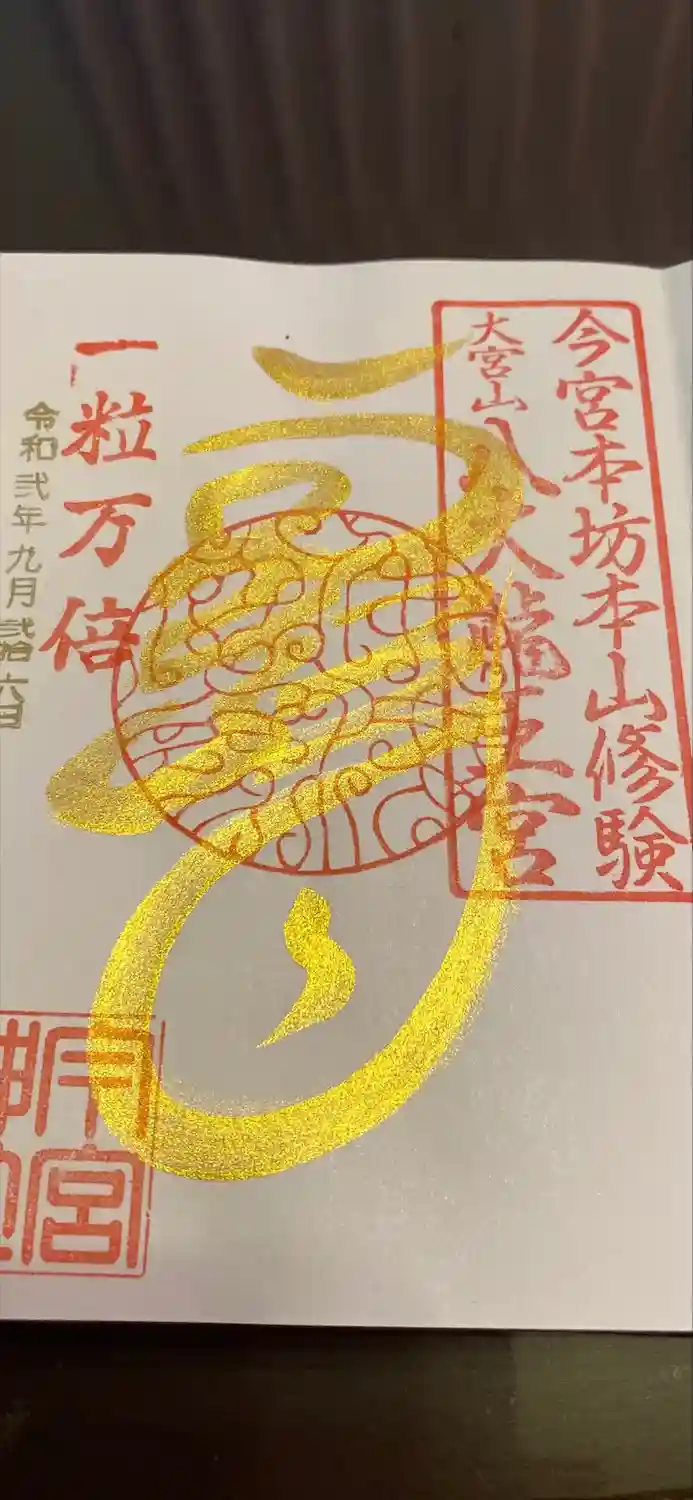 今宮本坊本山修験
大宮山八大龍王宮
一粒万倍
令和弐年九月弐拾六日
今宮